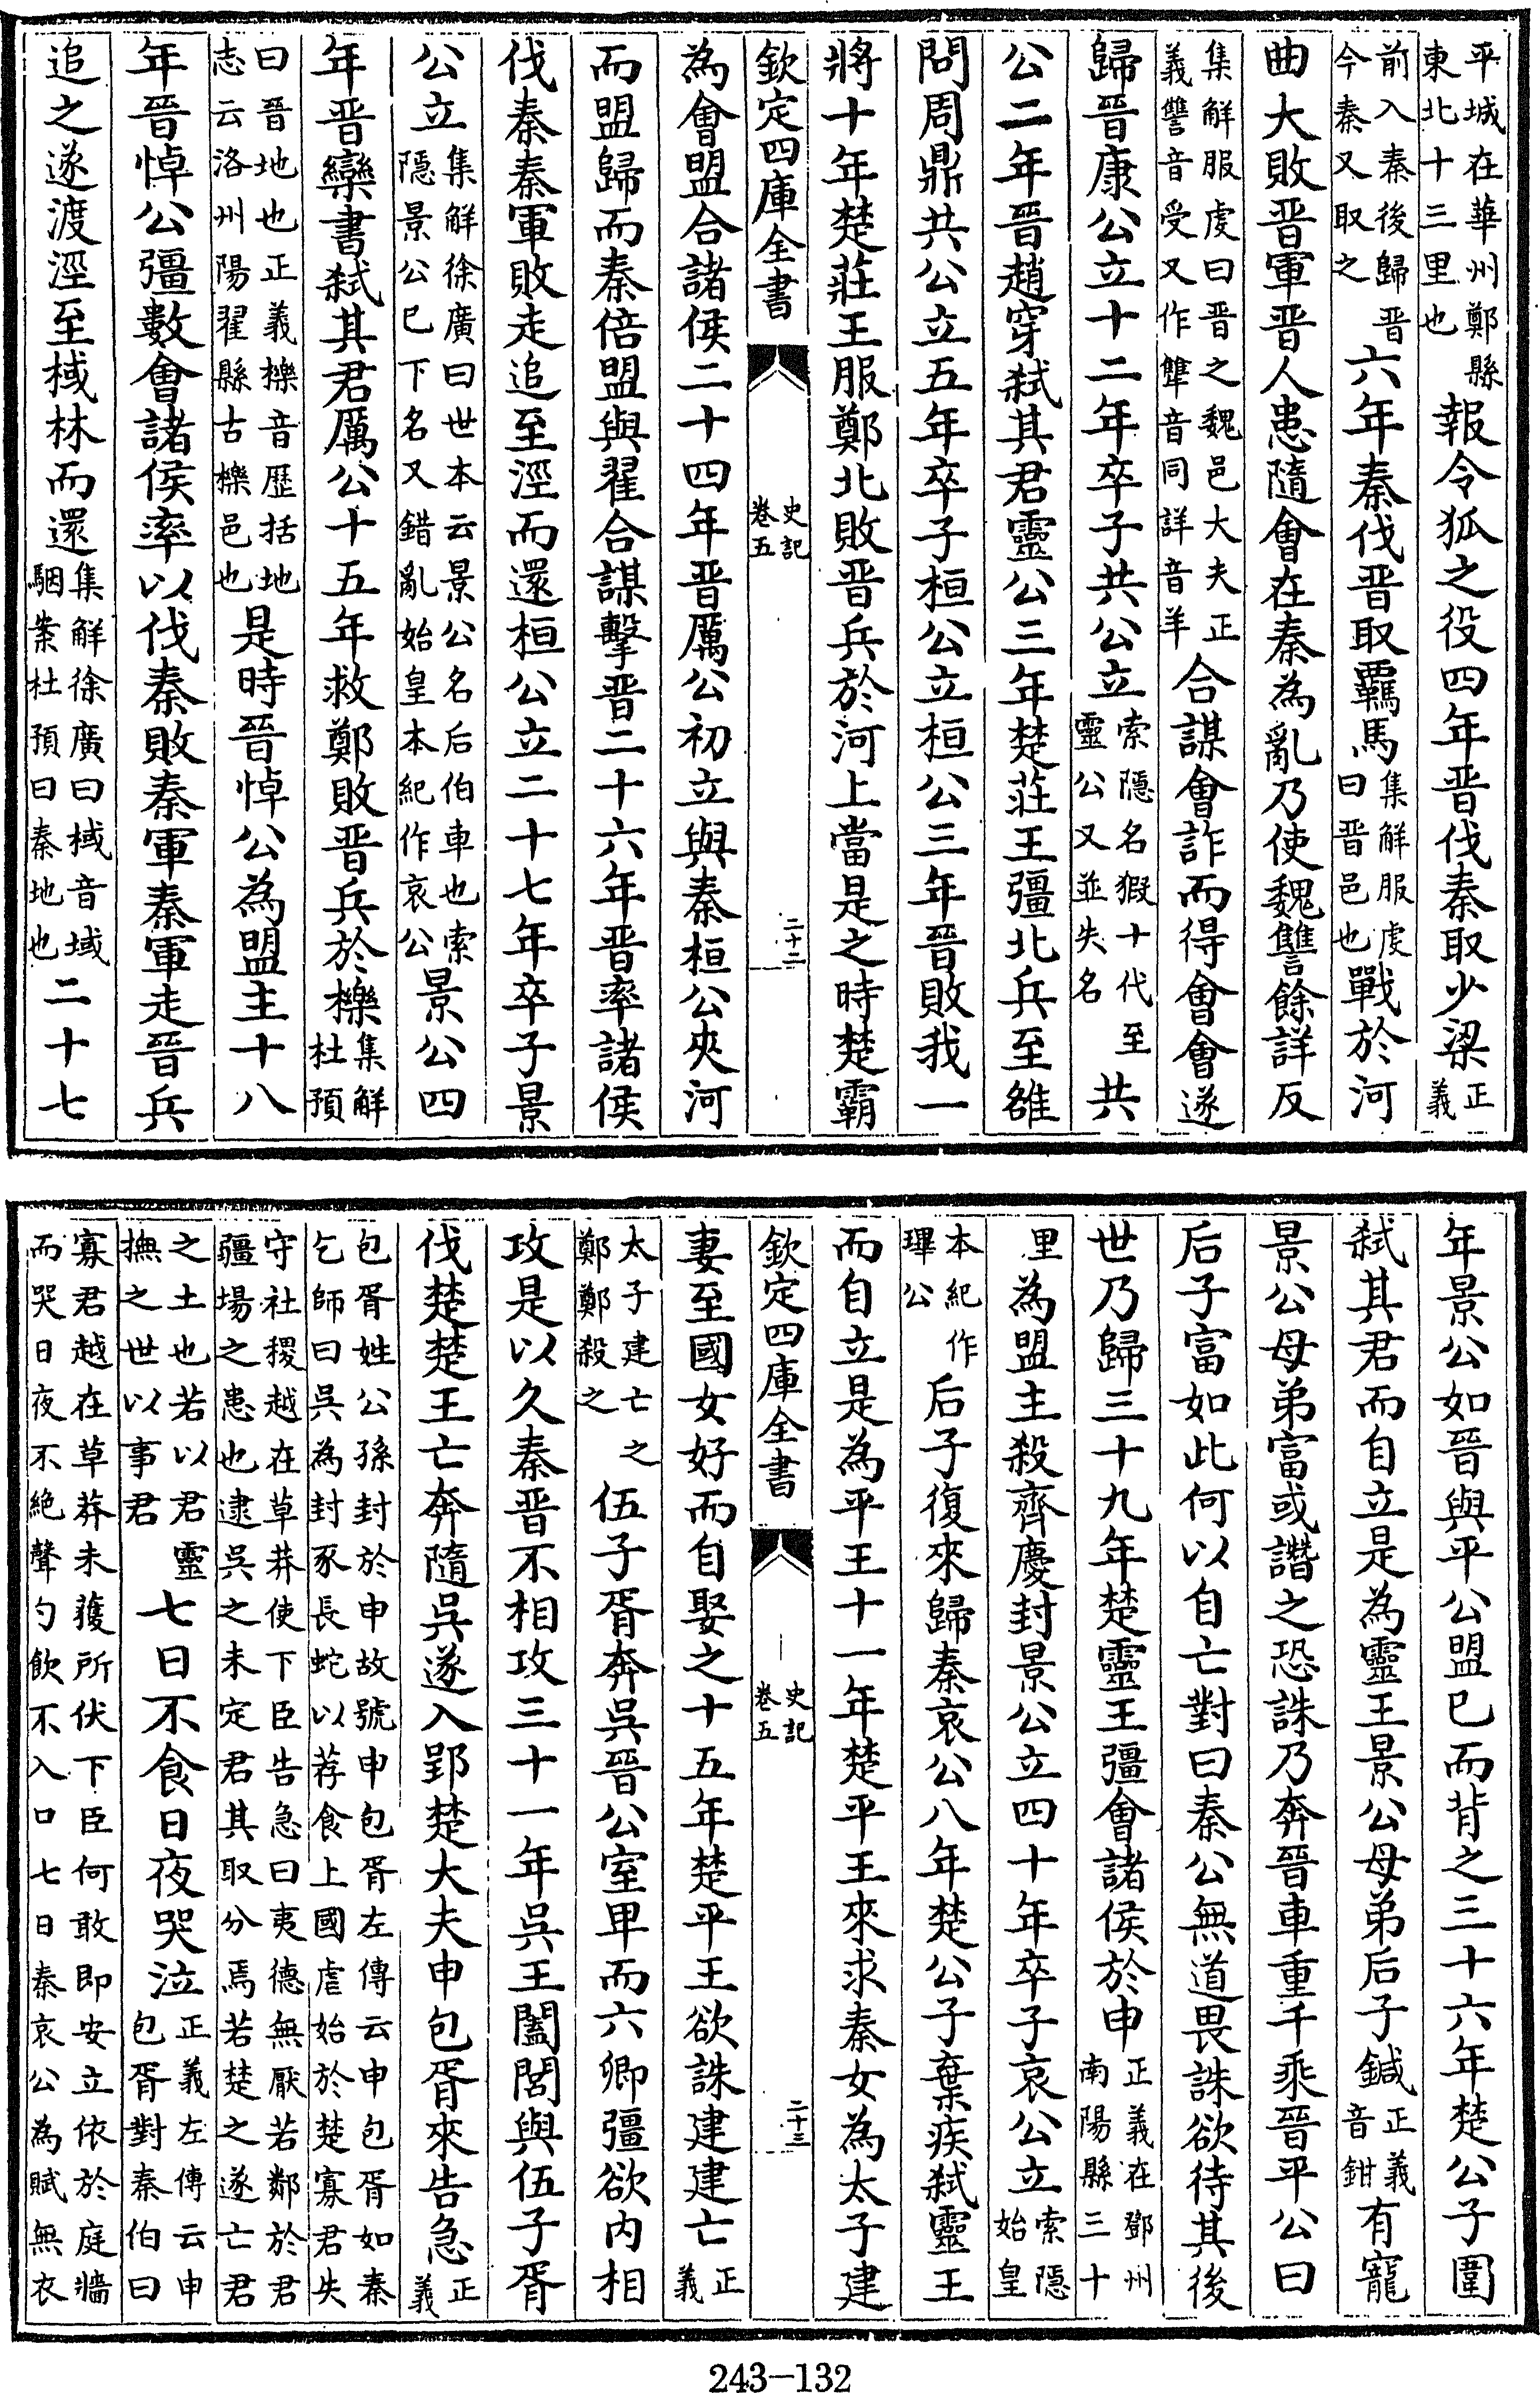 平城在華州鄭縣東北十三里也報令狐之役四年晉伐秦取少梁正義
前入秦後歸晉今秦又取之六年秦伐晉取羈馬集解服虔曰晉邑也戰於河
曲大敗晉軍晉人患隨會在秦為亂乃使魏讐餘詳反
集解服虔曰晉之魏邑大夫正義讐音受又作犨音同詳音羊合謀會詐而得會會遂
歸晉康公立十二年卒子共公立索隱名猳十代至靈公又並失名共
公二年晉趙穿弑其君靈公三年楚莊王彊北兵至雒
問周鼎共公立五年卒子桓公立桓公三年晉敗我一
將十年楚莊王服鄭北敗晉兵於河上當是之時楚霸
欽定四庫全書 史記卷五 二十二
為會盟合諸侯二十四年晉厲公初立與秦桓公夾河
而盟歸而秦倍盟與翟合謀擊晉二十六年晉率諸侯
伐秦秦軍敗走追至涇而還桓公立二十七年卒子景
公立集解徐廣曰世本云景公名后伯車也索隱景公已下名又錯亂始皇本紀作哀公景公四
年晉欒書弑其君厲公十五年救鄭敗晉兵於櫟集解杜預
曰晉地也正義櫟音歷括地志云洛州陽翟縣古櫟邑也是時晉悼公為盟主十八
年晉悼公彊數會諸侯率以伐秦敗秦軍秦軍走晉兵
追之遂渡涇至棫林而還集解徐廣曰棫音域駰案杜預曰秦地也二十七
年景公如晉與平公盟已而背之三十六年楚公子圍
弑其君而自立是為靈王景公母弟后子鍼正義音鉗有寵
景公母弟富或譖之恐誅乃奔晉車重千乘晉平公曰
后子富如此何以自亡對曰秦公無道畏誅欲待其後
世乃歸三十九年楚靈王彊會諸侯於申正義在鄧州南陽縣三十
里為盟主殺齊慶封景公立四十年卒子哀公立索隱始皇
本紀作㻫公后子復來歸秦哀公八年楚公子棄疾弑靈王
而自立是為平王十一年楚平王來求秦女為太子建
欽定四庫全書 史記卷五 二十三
妻至國女好而自娶之十五年楚平王欲誅建建亡正義
太子建亡之鄭鄭殺之伍子胥奔吳晉公室卑而六卿彊欲内相
攻是以久秦晉不相攻三十一年吳王闔閭與伍子胥
伐楚楚王亡奔隨吳遂入郢楚大夫申包胥來告急正義
包胥姓公孫封於申故號申包胥左傳云申包胥如秦乞師曰吳為封豕長蛇以荐食上國虐始於楚寡君失
守社稷越在草莽使下臣告急曰夷德無厭若鄰於君疆場之患也逮吳之未定君其取分焉若楚之遂亡君
之土也若以君靈撫之世以事君七日不食日夜哭泣正義左傳云申包胥對秦伯曰
寡君越在草莽未獲所伏下臣何敢即安立依於庭牆而哭日夜不絶聲勺飲不入口七日秦哀公為賦無衣
243-132